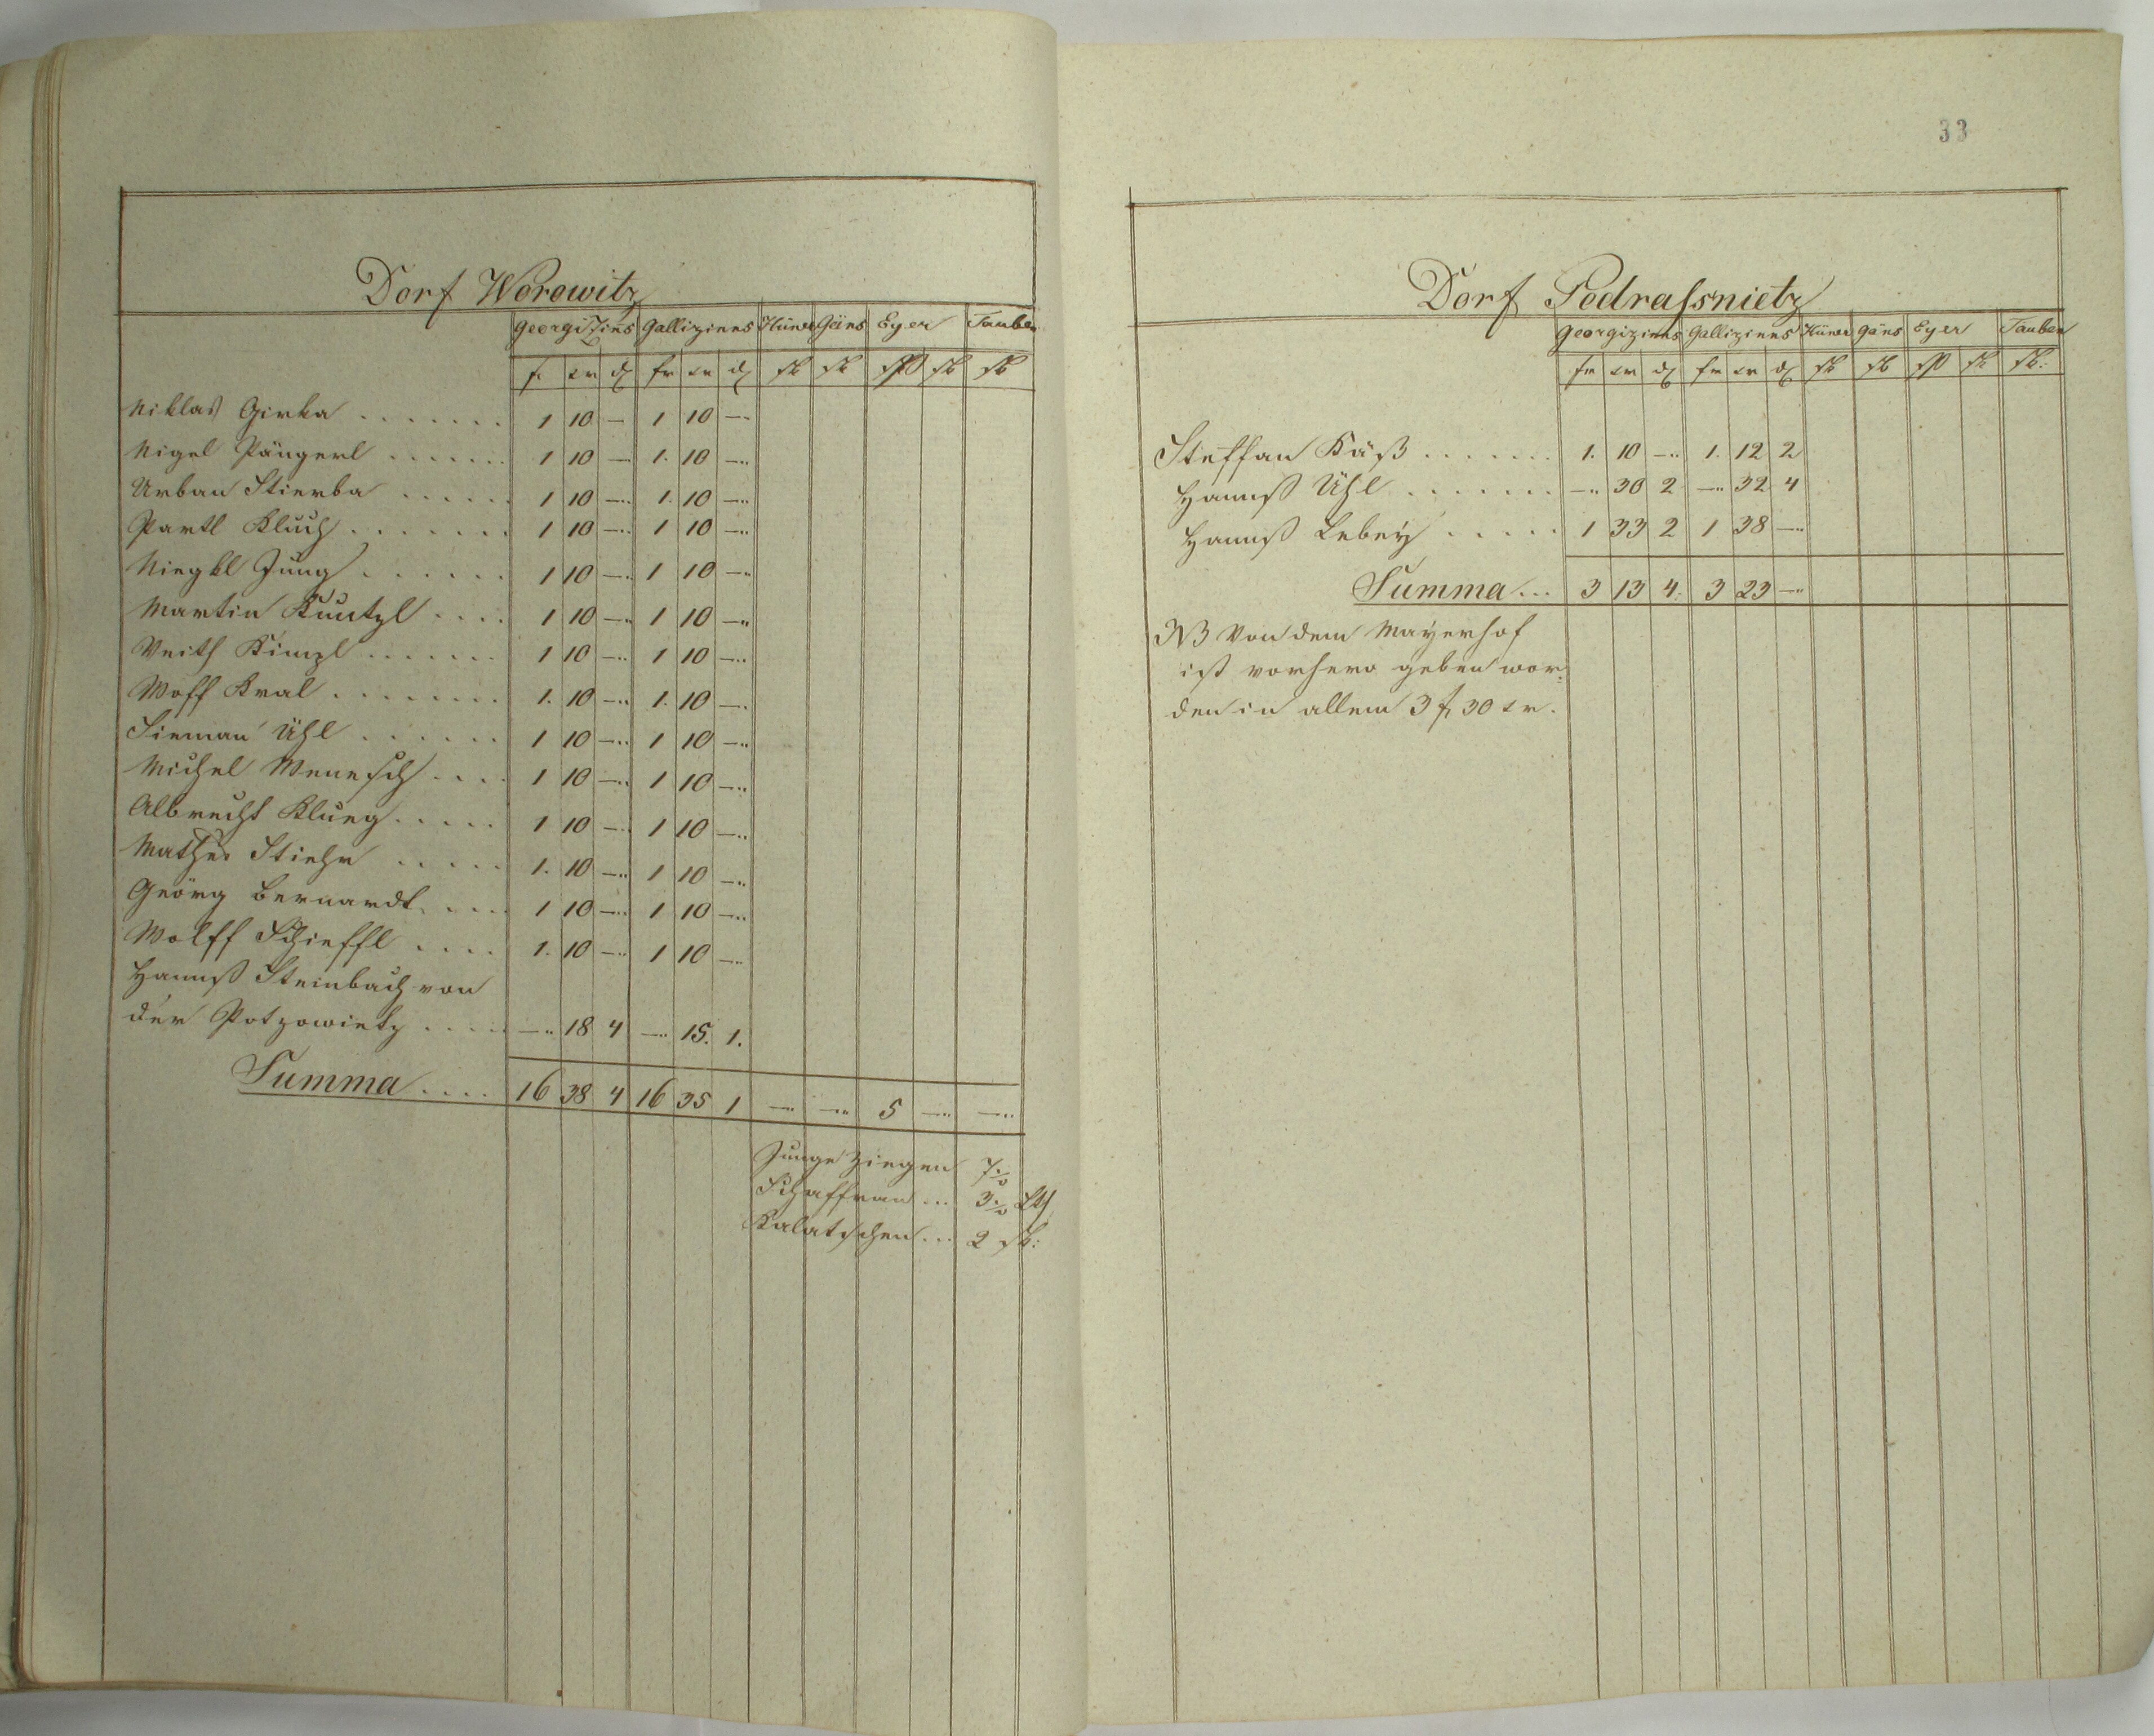 Dorf Worowitz
Georgi Zins Gallizinns Hüner Gäns Eyer Tauben
f. kr ₰ fr kr ₰ st st ßß st st
Niklas Girka . . . . . . . 1 10 — 1 10 —
Nigel Pängerl . . . . . . 1 10 — 1. 10 —
Urban Stierba . . . . . 1 10 — 1. 10 —
Partl Kluch . . . . . . . 1 10 — 1 10 —
Niegkl Jung . . . . . . 1 10 — 1 10 —
Martin Kuntzl . . . . 1 10 — 1 10 —
Veith Kinzl . . . . . . . 1 10 — 1 10 —
Woff Kral . . . . . . . . 1. 10 — 1. 10 —
Simman Uhl . . . . . . 1 10 — 1 10 —
Michel Wenesch . . . . 1 10 — 1 10 —
Albrecht Klueg . . . . . 1 10 — 1 10 —
Mathes Stiehr . . . . . 1. 10 — 1 10 —
Geörg Bernardt . . . . 1 10 — 1 10 —
Wolff Schieffl . . . . 1. 10 — 1 10 —
Hannß Steinbach von
der Potzowietz . . . . — 18 4 — 15. 1.
Summa . . . . 16 38 4 16 35 1 — — 5 — —
Junge Ziegen 7
Schaffran . . . 3 Lth
Kalatschen . . . 2 st:
33
Dorf Podrassnietz
Georgizinns Gallizinns Hüner Gäns Eyer Tauben
fr kr ₰ fr kr ₰ st st ßß st st:
Steffan Käß . . . . . . . 1. 10 — 1. 12 2
Hannß Uhl . . . . . . . — 30 2 — 32 4
Hannß Lebey . . . . . 1 33 2 1 38 —
Summa . . . 3 13 4. 3 23 —
NB Von dem Mayerhof
ist vorhero geben wor=
den in allem 3 f 30 kr.